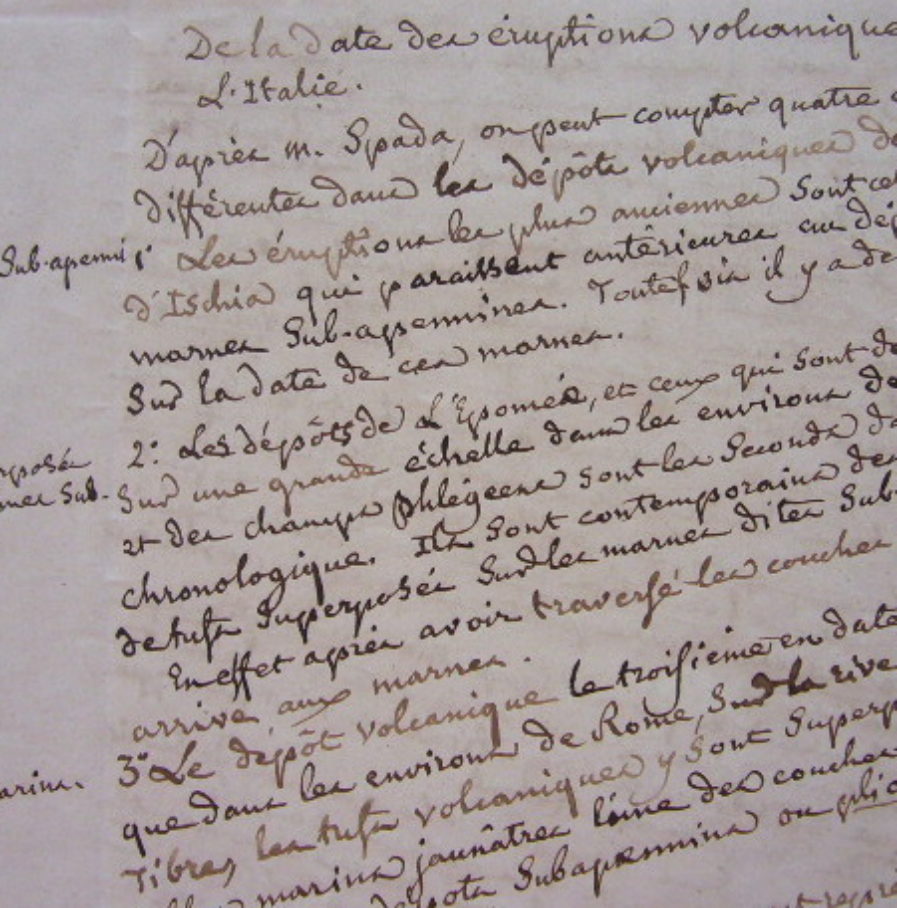 De la date des éruptions volcanique
L'Italie.
D'après m. Spada, on peut compter quatre
différentes dans les dépôts volcaniques de
Sub-apenni
1° Les éruptions les plus anciennes sont cel
d'Ischia qui paraissent antérieures au dép
marnes Sub-apennines. Toutefois il y a de
Sur la date de ces marnes.
2° Les dépôts de L'Epomée, et ceux qui sont de
rposés
Sur une grande échelle dans les environs de
nes Sub-
et des champs phlégéens sont les Seconds da
chronologique. Ils sont contemporains des
de tufs Superposés Sur les marnes dites Sub-
En effet après avoir traversé les couches
arrive aux marnes.
3° Le dépôt volcanique le troisième en date
arins.
que dans les environs de Rome, Sur la rive
Tibre, les tufs volcaniques y sont Superp
marins jaunâtres l'une des couches
dépots Subapennins ou plio